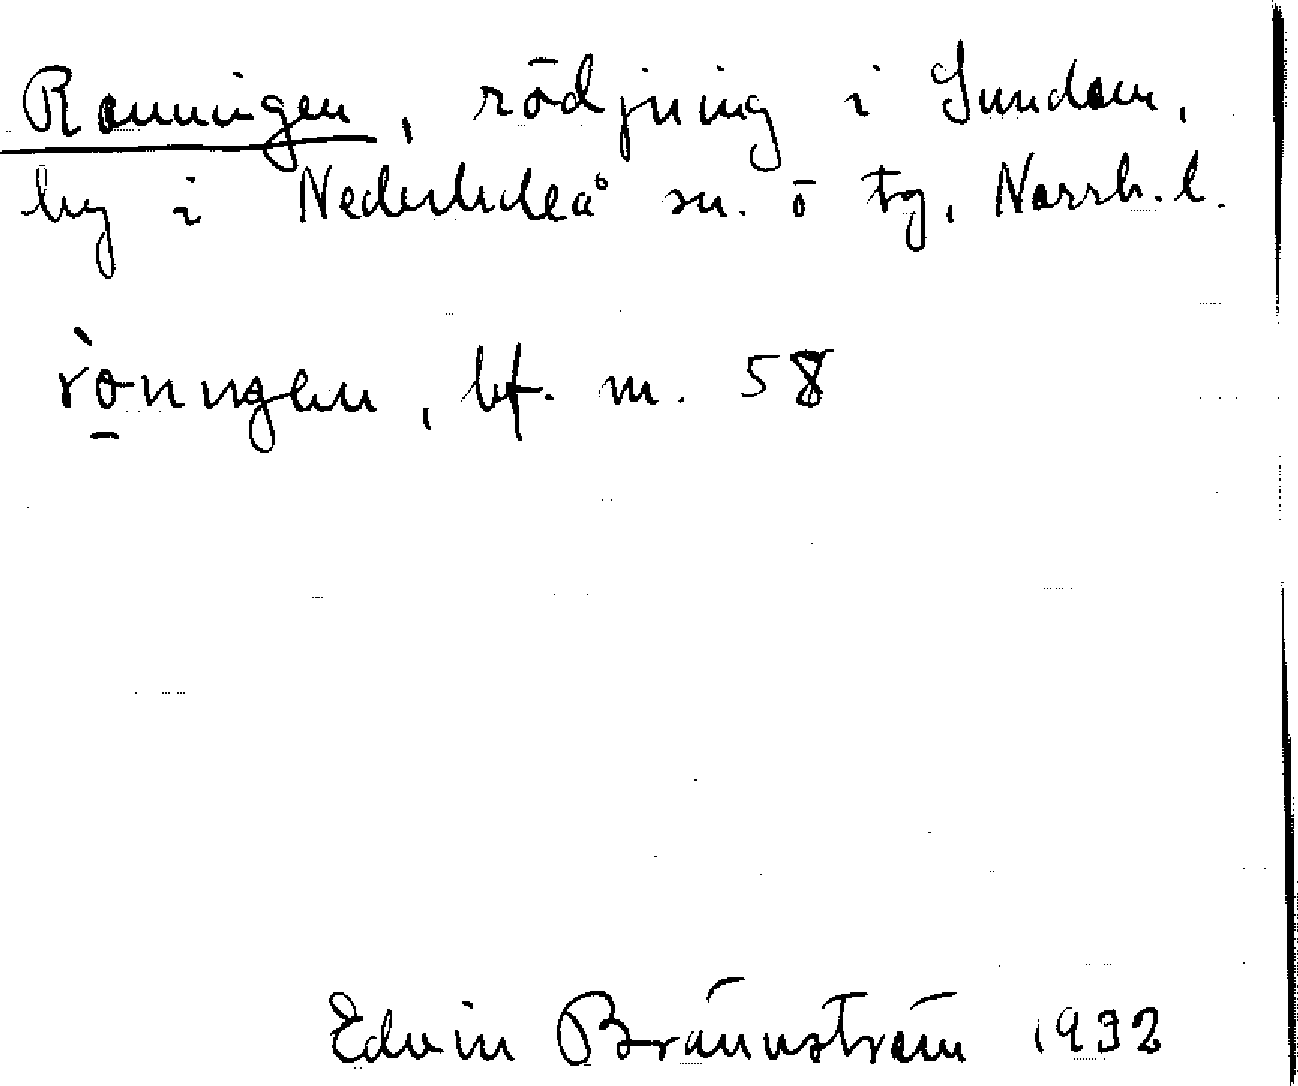 Ronningen, rödjning i Sundom,
by i Nederluleå sn. ö tg, Norrb. l.
rò̱nnŋen, bf. m. 58
Edvin Brännström 1932